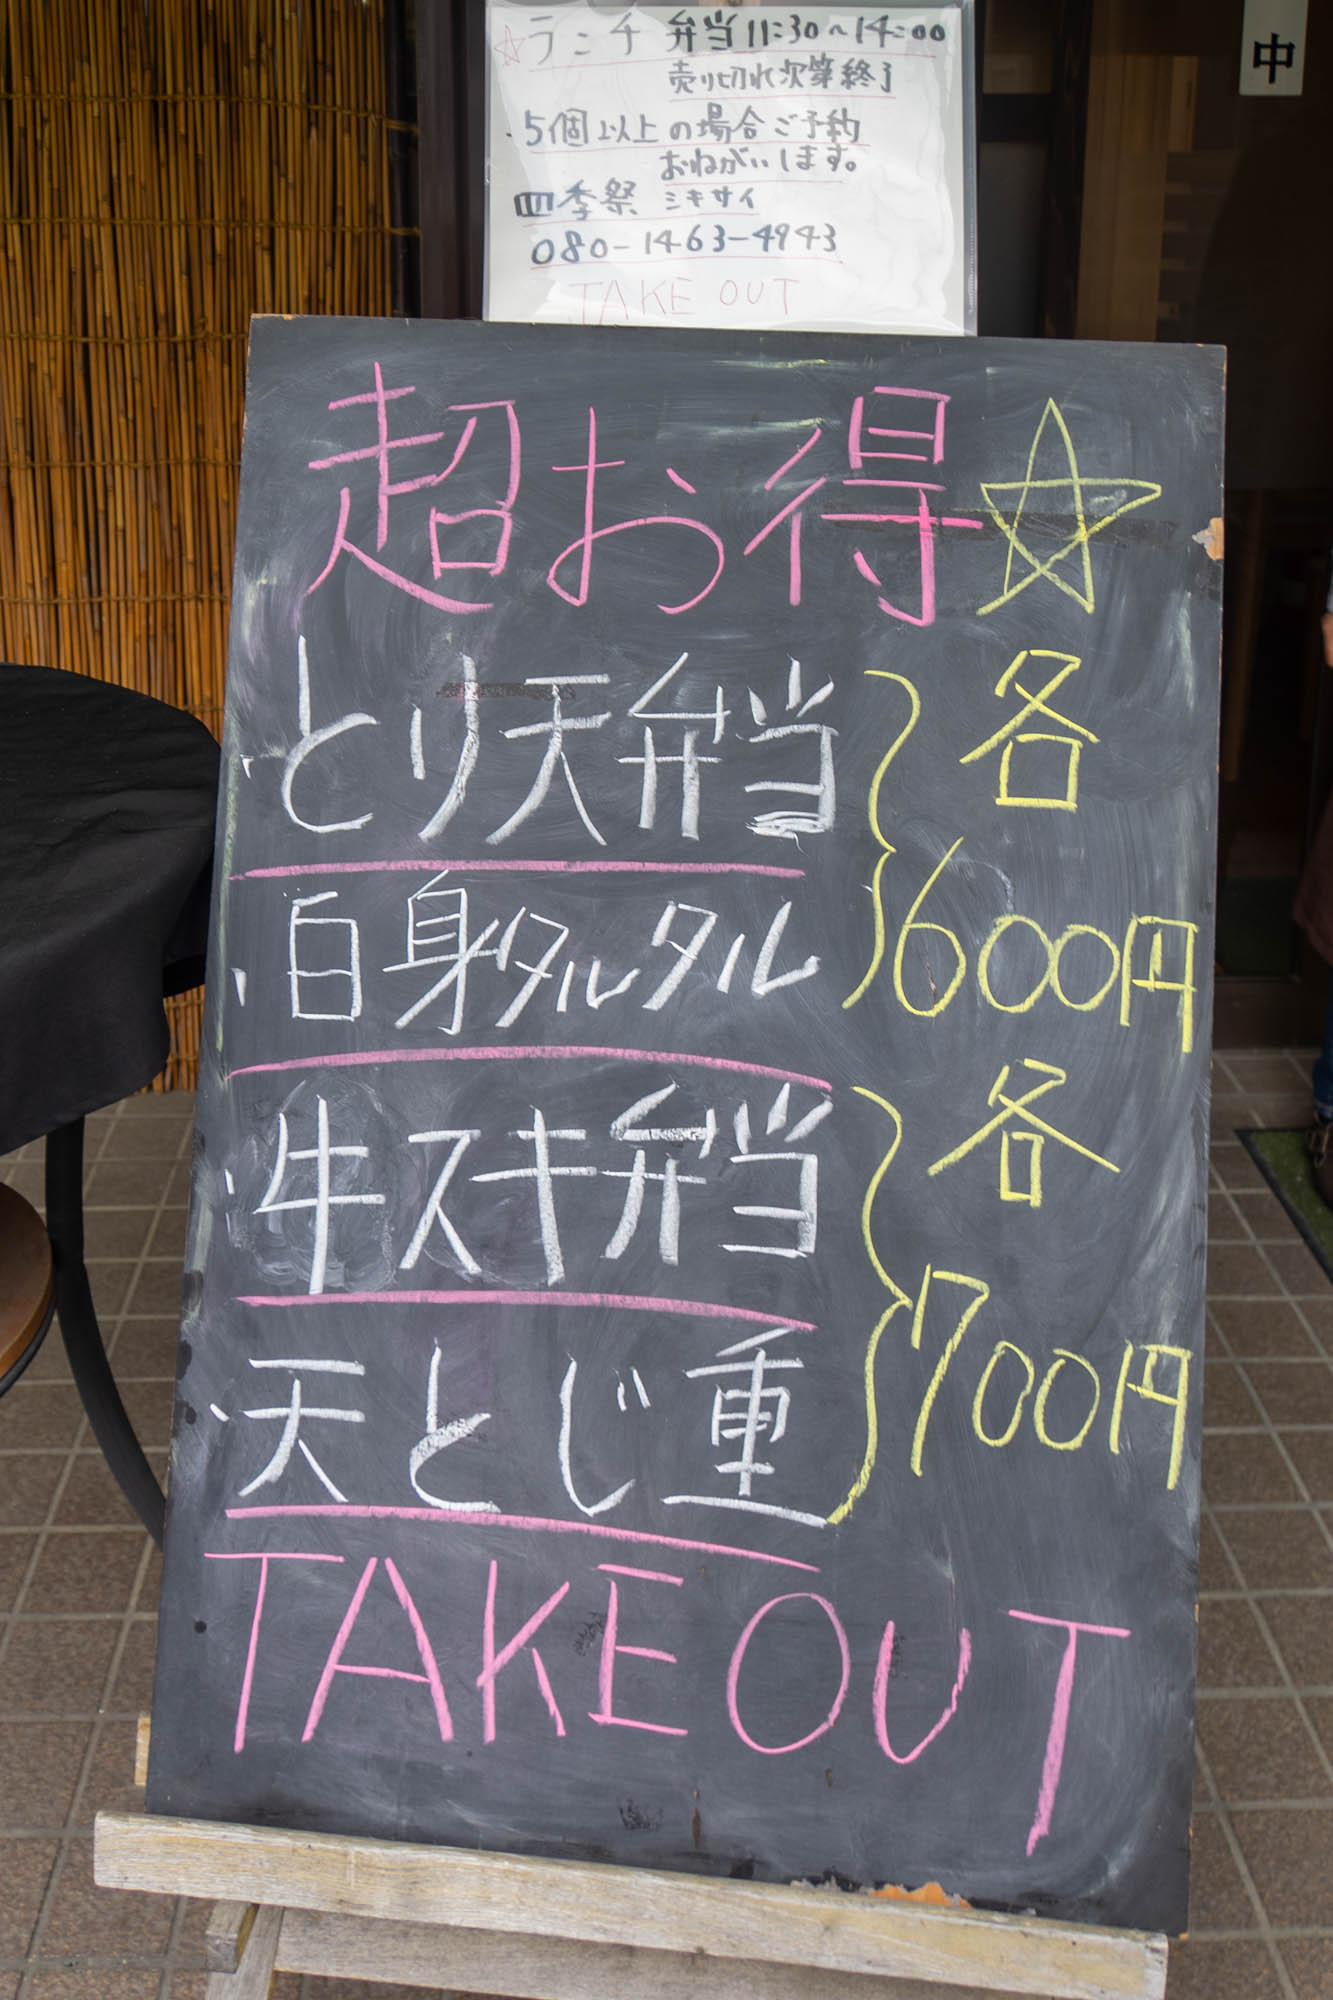 ☆ランチ 弁当11:30~14:00
売り切れ次第終了
・5個以上の場合ご予約
おねがいします。
四季祭 ミキサイ
080-1463-4943
TAKE OUT
中
超お得☆
・とり天弁当
・白身タルタル
各
600円
・牛スキ弁当
・天とじ重
各
700円
TAKE OUT